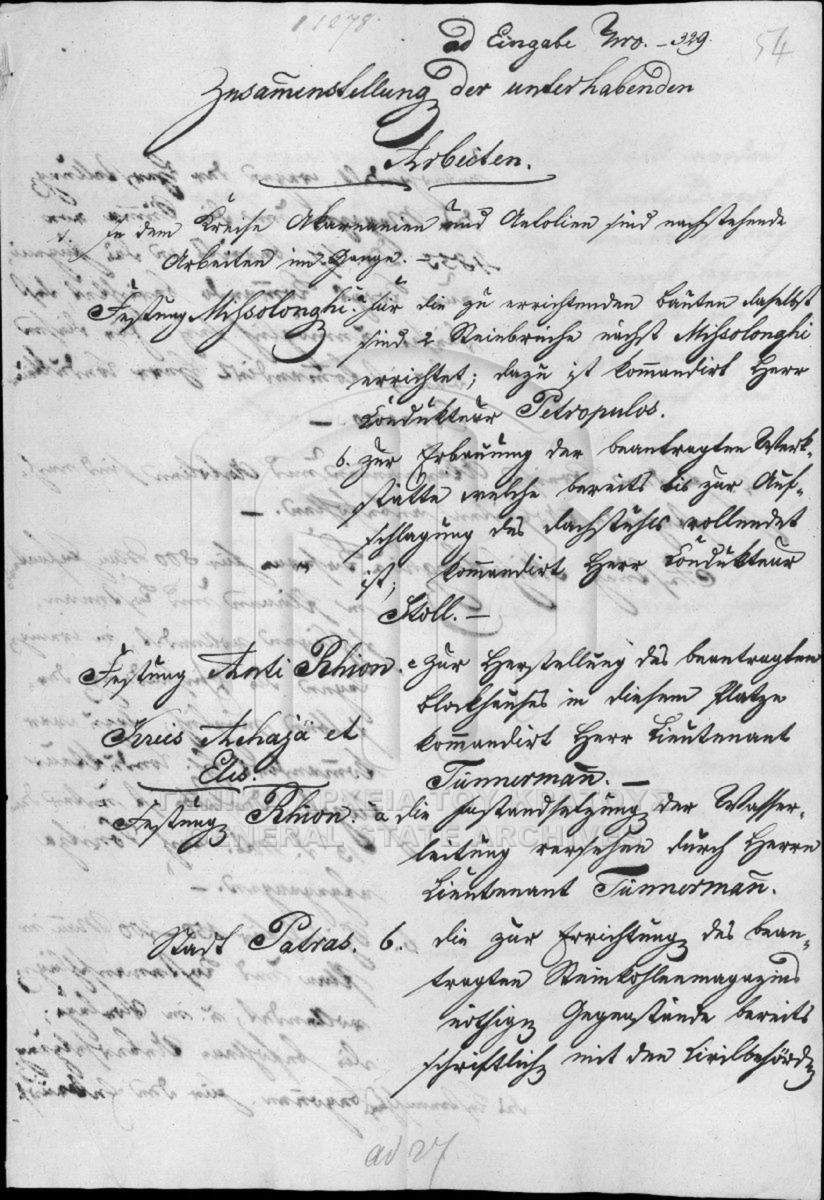 11278.
ad Eingabe Nro. 329.
54
Zusam̅enstellung der unterhabenden
Arbeiten.
in dem Kreise Akarnanien und Aetolien sind nachstehende
Arbeiten im Gange. —
Festung Missolonghi. a für die zu errichtenden Bauten daselbst
sind 2 Steinbrüche nächst Missolonghi
errichtet; dazu ist kom̅andirt Herr
Condukteur Petropulos.
b. zur Erbauung der beantragten Werk-
stätte welche bereits bis zur Auf-
schlagung des Dachstuhls vollendet
ist, kom̅andirt Herr Condukteur
Stoll. —
Festung Anti Rhion. c zur Herstellung des beantragten
Blockhauses in diesem Platze
Kreis Achaja et
kom̅andirt Herr Lieutenant
Elis.
Tünnerman̅. —
Festung Rhion. a die Instandsetzung der Wasser-
leitung versehen durch Herrn
Lieutenant Tünnerman̅.
Stadt Patras. b. die zur Errichtung des bean-
tragten Steinkohlenmagazins
nöthigen Gegenstände bereits
schriftlich mit den Civilbehörden
ad 27
ΓΕΝΙΚΑ ΑΡΧΕΙΑ ΤΟΥ ΚΡΑΤΟΥΣ
GENERAL STATE ARCHIVES